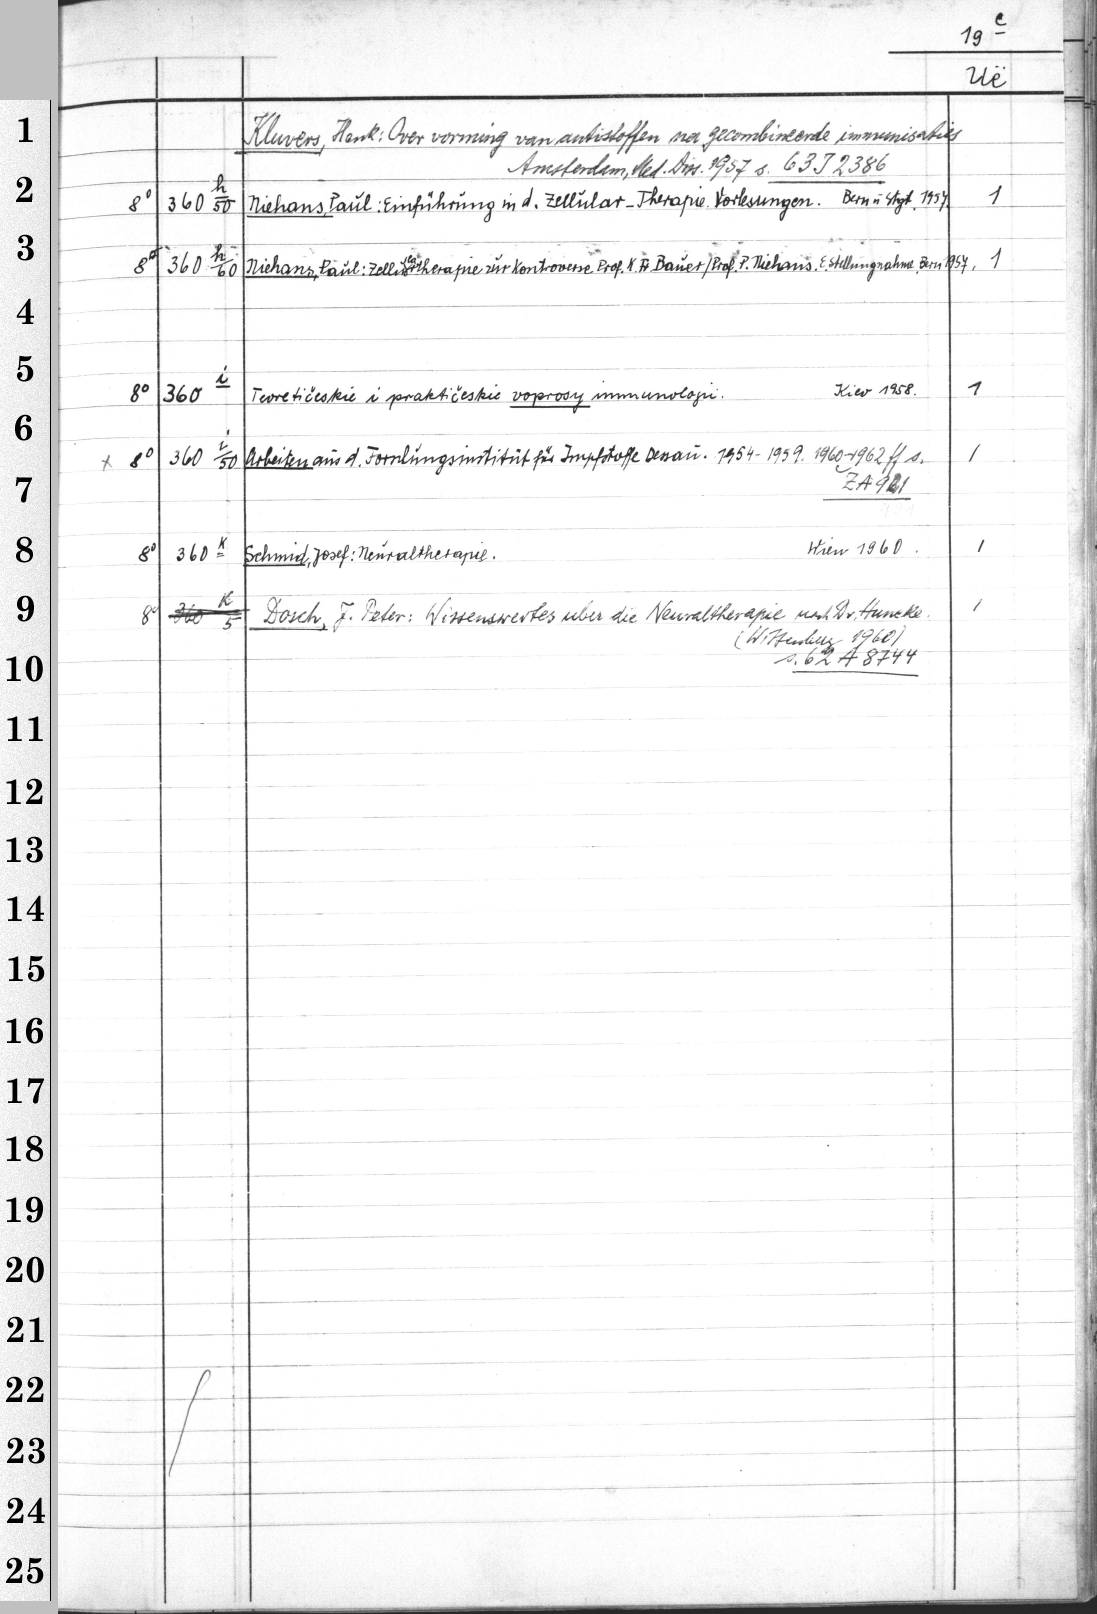 19 e
Uë
1
Kluvers, Henk: Over vorming van antistoffen na gecombineerde immunisaties
Amsterdam, Med. Diss. 1957 s. 63 J 2386
2
8° 360 h/50 Niehans, Paul: Einführung in d. Zellular-Therapie. Vorlesungen. Bern u. Stgt. 1957 1
3
8° 360 h/60 Niehans, Paul: Zellulartherapie zur Kontroverse Prof. K. H. Bauer / Prof. P. Niehans. E. Stellungnahme. Bern 1957. 1
4
5
8° 360 i Teoretičeskie i praktičeskie voprosy immunologii. Kiev 1958. 1
6
x 8° 360 i/50 Arbeiten aus d. Forschungsinstitut für Impfstoffe Dessau. 1954-1959. 1960-1962 ff s. 1
7
ZA 921
8
8° 360 k Schmid, Josef: Neuraltherapie. Wien 1960. 1
9
8° 360 k/5 Dosch, J. Peter: Wissenswertes über die Neuraltherapie nach Dr. Huneke. 1
(Wittenberg 1960)
10
s. 62 A 8744
11
12
13
14
15
16
17
18
19
20
21
22
23
24
25